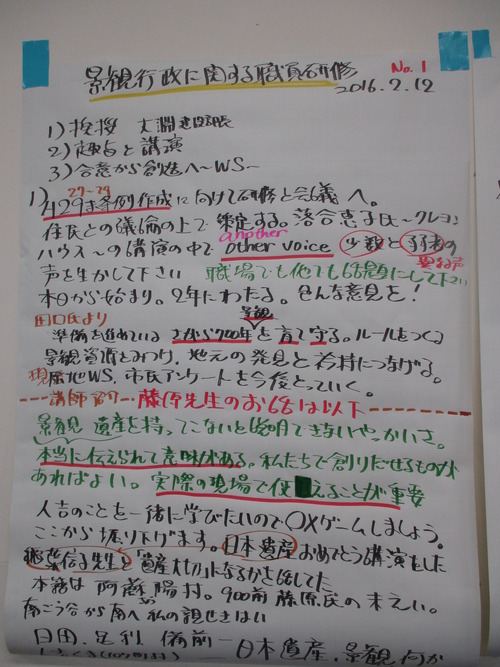 No.1
景観行政に関する職員研修
2016.7.12
1) 挨拶 大淵建設部長
2) 趣旨と講演
3) 合意から創造へ〜WS〜
1) 条例作成に向けて研修と会議へ。
住民との議論の上で策定する。落合恵子氏〜クレヨン
another
ハウス〜の講演の中で other voice 少数と弱者の
異なる声
声を生かして下さい 職場でも他でも話題にして下さい
本日から始まり。2年にわたる。色んな意見を!
田口氏より 景観
準備を進めている 700年を育て守る。ルールをつくる
景観資源をみつけ、地元の発見と衿持につなげる。
現地WS、市民アンケートを今後とっていく。
講師紹介 藤原先生のお話は以下
景観 遺産を持ってこないと説明できないやっかいさ。
本当に伝えられて意味がある。私たちで創りだせるものが
あればよい。実際の現場で使えることが重要
人吉のことを一緒に学びたいので〇×ゲームしましょう。
ここから掘り下げます。日本遺産おめでとう講演をした
先生と「遺産大切」になるかを話してた
本籍は 阿蘇 陽村。900前 藤原氏の末えい。
日田、足利 備前 - 日本遺産、景観